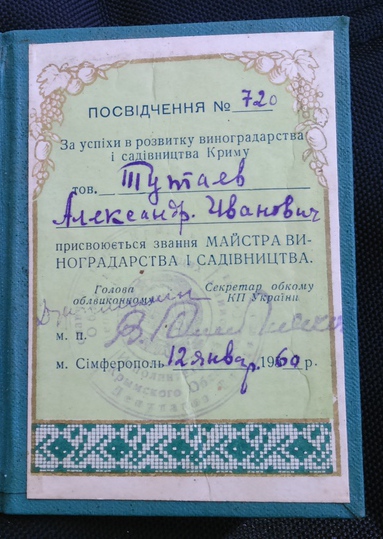 ПОСВІДЧЕННЯ № 720
За успіхи в розвитку виноградарства
і садівництва Криму
тов. Тутаев
Александр. Иванович
присвоюється звання МАЙСТРА ВИ-
НОГРАДАРСТВА І САДІВНИЦТВА.
Голова
облвиконкому
Секретар обкому
КП України
м. п.
м. Сімферополь 12 январ, 1960 р.